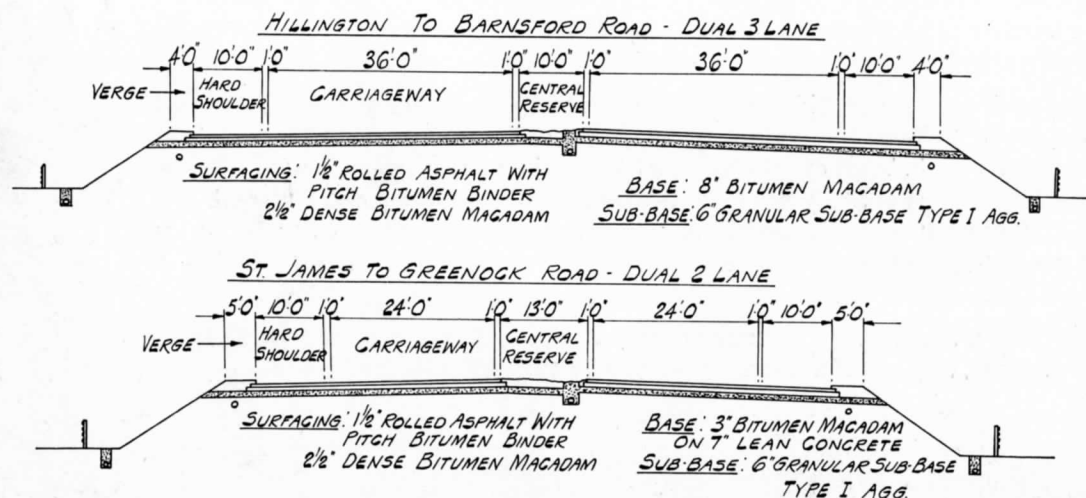 HILLINGTON TO BARNSFORD ROAD - DUAL 3 LANE
4'0" 10'-0" 1'0" 36'0" 1'0" 10'0" 1'0" 36'-0" 1'0" 10'0" 4'0"
VERGE
HARD
SHOULDER
CARRIAGEWAY
CENTRAL
RESERVE
SURFACING: 1½" ROLLED ASPHALT WITH
PITCH BITUMEN BINDER
2½" DENSE BITUMEN MACADAM
BASE: 8" BITUMEN MACADAM
SUB-BASE: 6" GRANULAR SUB-BASE TYPE I AGG.
ST. JAMES TO GREENOCK ROAD - DUAL 2 LANE
5'0" 10'0" 1'0" 24'0" 1'0" 13'0" 1'0" 24'0" 1'0" 10'0" 5'0"
VERGE
HARD
SHOULDER
CARRIAGEWAY
CENTRAL
RESERVE
SURFACING: 1½" ROLLED ASPHALT WITH
PITCH BITUMEN BINDER
2½" DENSE BITUMEN MACADAM
BASE: 3" BITUMEN MACADAM
ON 7" LEAN CONCRETE
SUB-BASE: 6" GRANULAR SUB-BASE
TYPE I AGG.